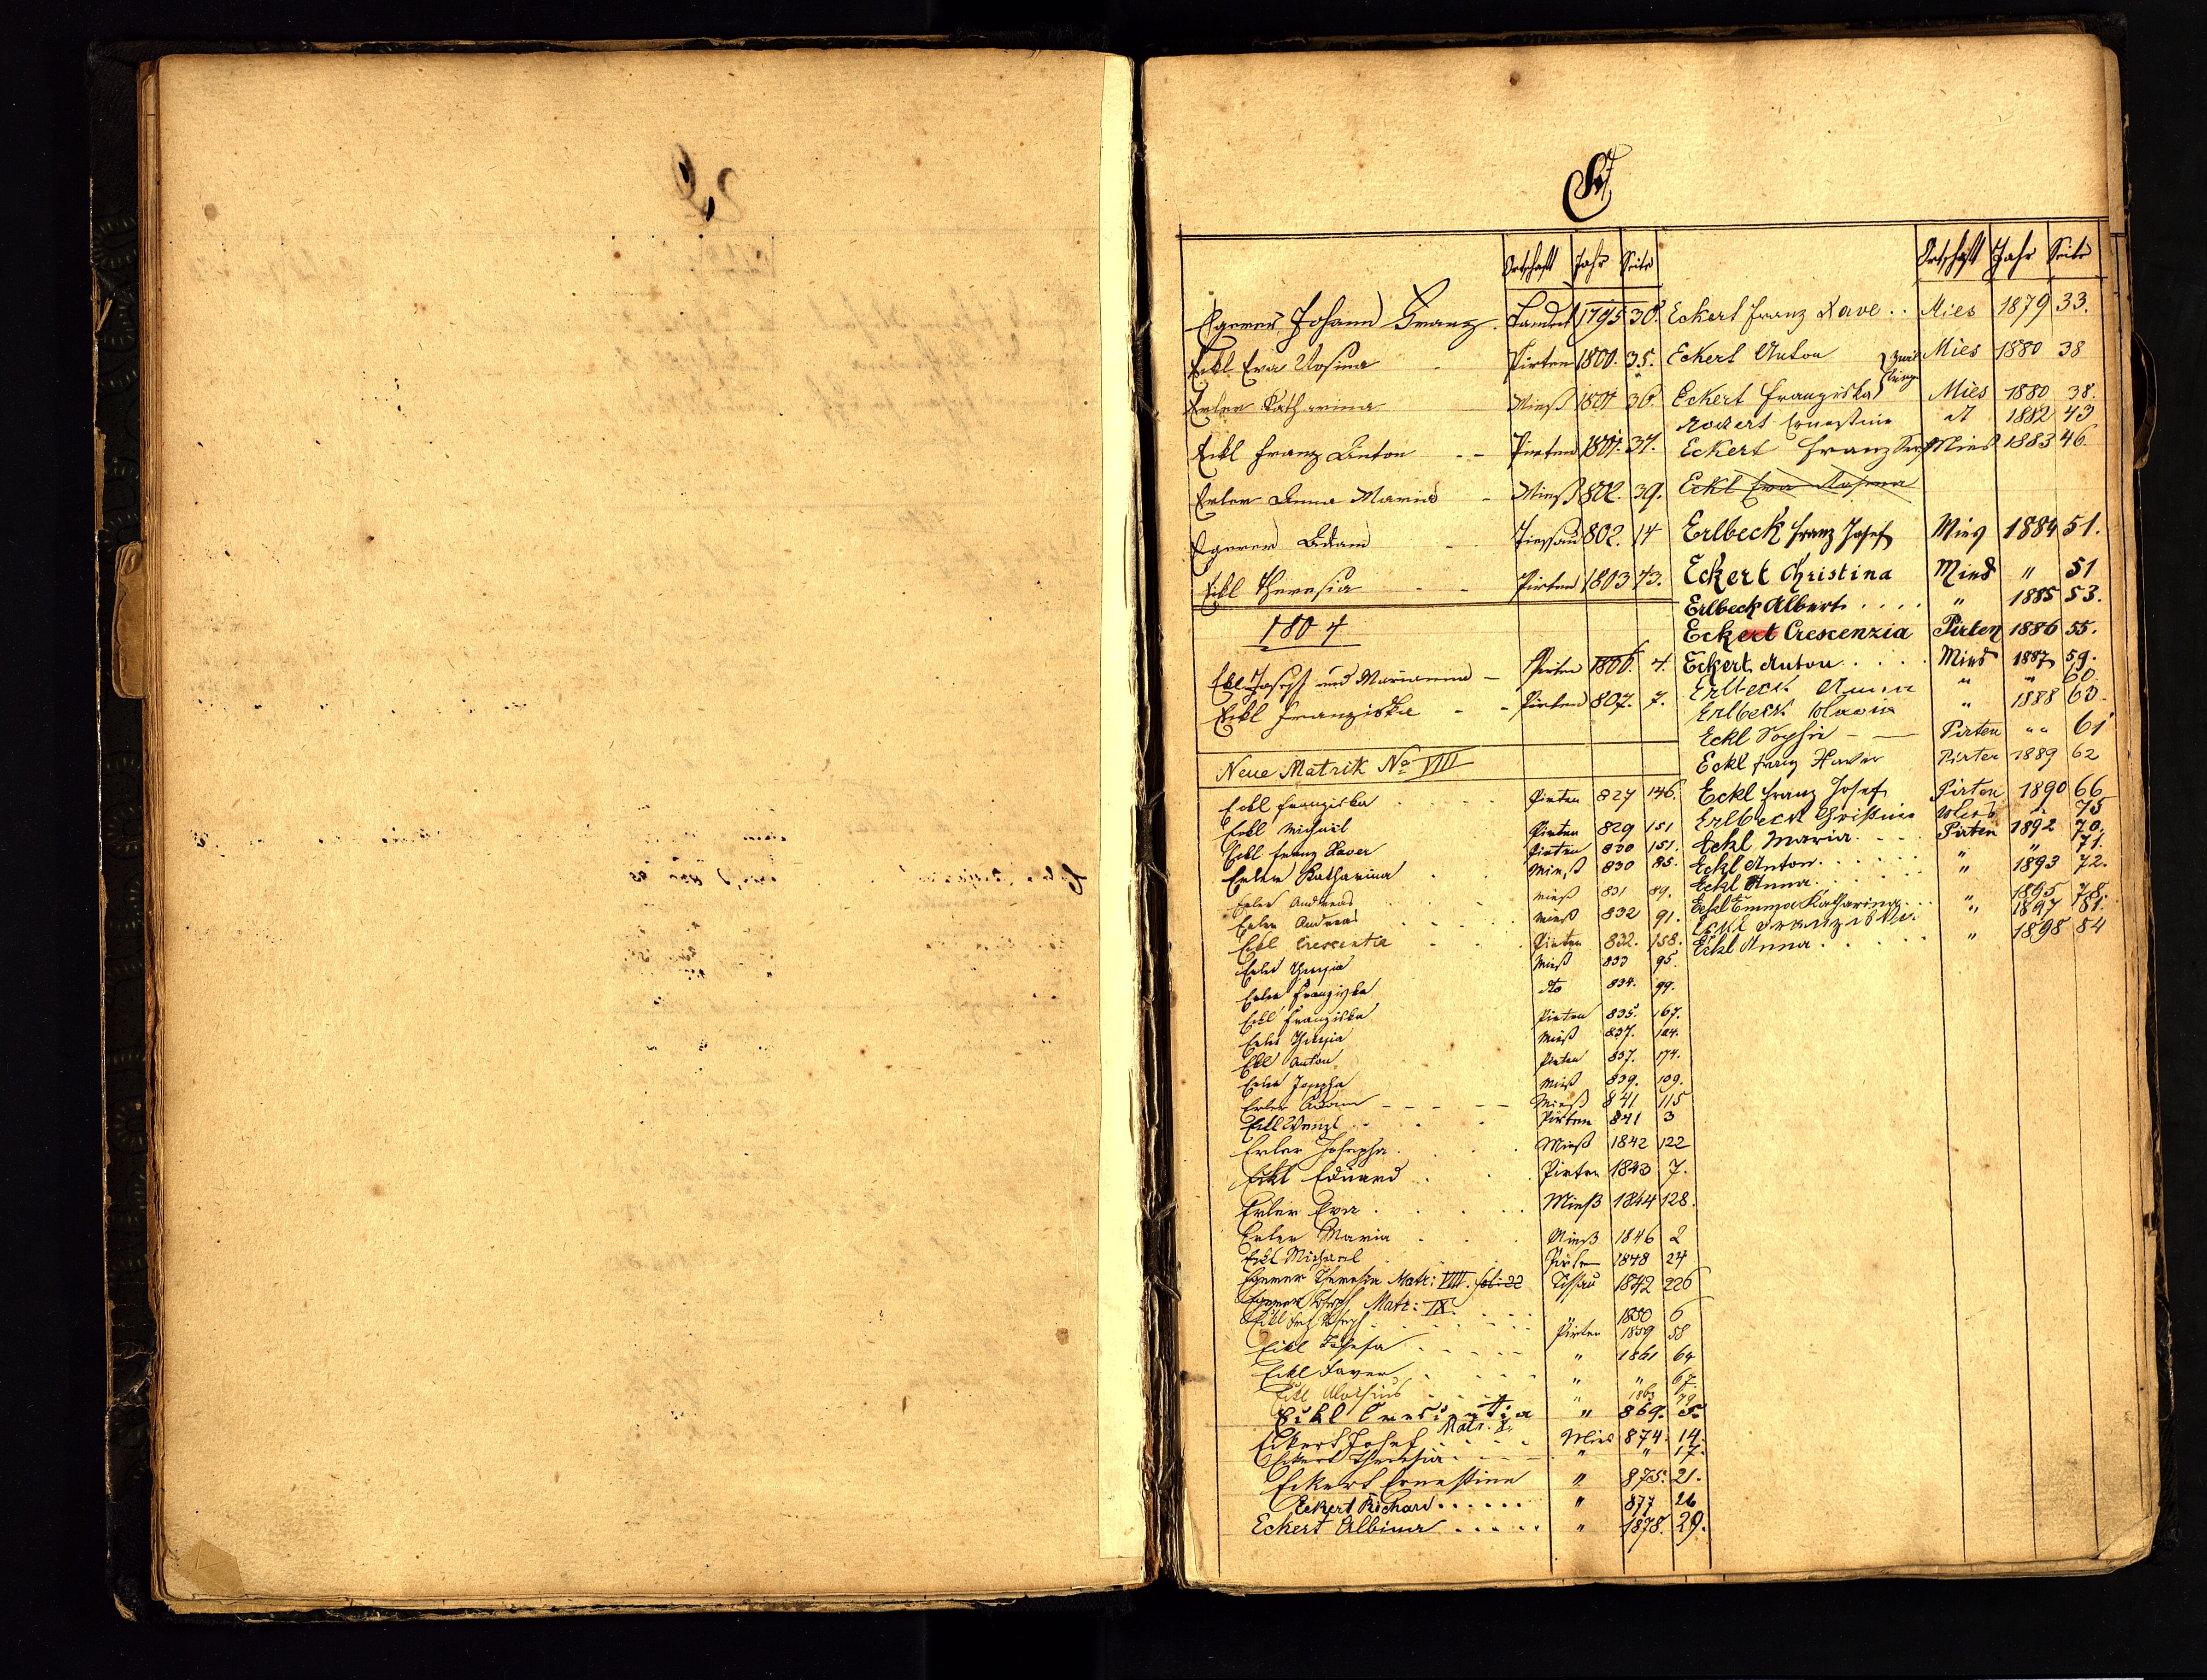 E
Ortschaft Jahr Seite
Egerer Johann Franz 1795 30.
Eckl Eva Rosina Pirten 1800. 35.
Erler Katharina Mieß 1801 36
Eckl Franz Anton Pirten 1801. 37.
Erler Anna Maria Mieß 802. 39.
Egerer Adam Tissau 802. 14
Eckl Theresia Pirten 1803 43.
1804
Ekl Joseph und Marianna Pirten 1806. 4.
Eckl Franziska Pirten 807. 7.
Neue Matrik No VIII
Eckl Franziska Pirten 827 146.
Eckl Michael Pirten 829 151
Eckl Franz Xaver Pirten 830 151.
Erler Katharina Mieß 830 85.
Erler Andreas Mieß 831 89.
Erler Andreas Mieß 832 91.
Eckl Crescentia Pirten 832. 158.
Erler Theresia Mieß 833 95.
Erler Franziska dto 834. 99.
Eckl Franziska Pirten 835. 167.
Erler Theresia Mieß 837. 104.
Ekl Anton Pirten 837. 174.
Erler Josepha Mieß 839. 109.
Erler Adam Mieß 841 115
Eckl Wenzl Pirten 841 3
Erler Josepha Mieß 1842 122
Eckl Eduard Pirten 1843 7.
Erler Eva Mieß 1844 128.
Erler Maria Mieß 1846 2
Eckl Michael Pirten 1848 24
Egerer Theresia Matr: VIII. fol: 22 Tissau 1842 226
Egerer Joseph Matr: IX. 1850 6
Eckl Joseph Pirten 1859 58
Eckl Josefa " 1861 64
Eckl Xaver " " 67.
Eckl Aloisius " 1863 79.
Eckl Crescentia " 869.
Matr. X.
Eckert Josef Mies 874. 14.
Eckert Theresia " " 17.
Eckert Ernestine " 875. 21.
Eckert Richard " 877 26
Eckert Albina " 1878. 29.
Ortschaft Jahr Seite
Eckert Franz Xave Mies 1879 33.
Eckert Anton Zwil Mies 1880 38
Eckert Franziska linge Mies 1880 38.
Eckert Ernestine dt 1882 43
Eckert Franz Mies 1883 46.
Eckl Eva Rosina
Erlbeck Franz Josef Mies 1884 51.
Eckert Christina Mies " 51
Erlbeck Albert " 1885 53.
Eckert Crescenzia Pirten 1886 55.
Eckert Anton Mies 1887 59.
Erlbeck Anna " " 60.
Erlbeck Maria " 1888 60.
Eckl Sophie Pirten " " 61
Eckl Franz Xaver Pirten 1889 62
Eckl Franz Josef Pirten 1890 66
Erlbeck Christine Mies " 75
Eckl Maria Pirten 1892 70.
Eckl Anton " " 71.
Eckl Anna " 1893 72.
Eckl Emma Katharina " 1895 78.
Eckl Franziska " 1897 81.
Eckl Anna " 1898 84